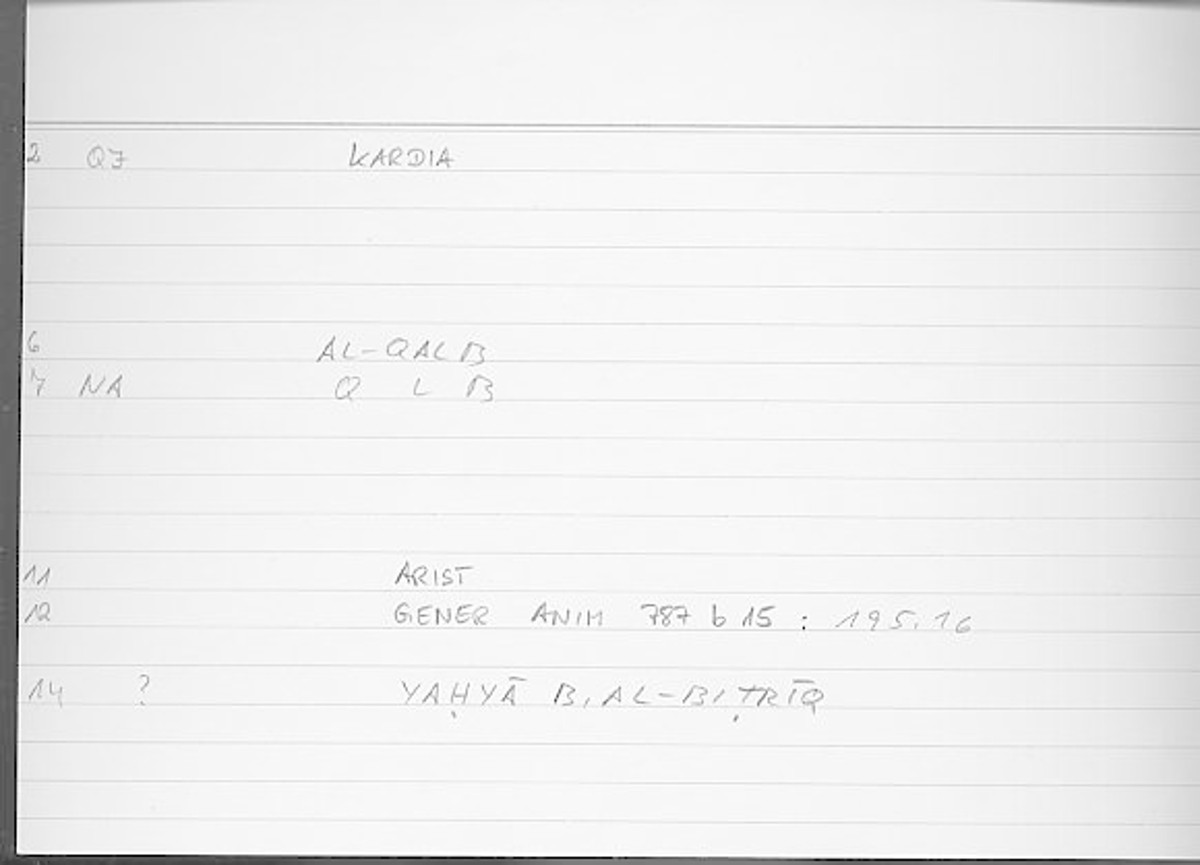 2 QJ KARDIA
6 AL-QALB
7 NA Q L B
11 ARIST
12 GENER ANIM 787 b 15 : 195.16
14 ? YAḤYĀ B. AL-BIṬRĪQ